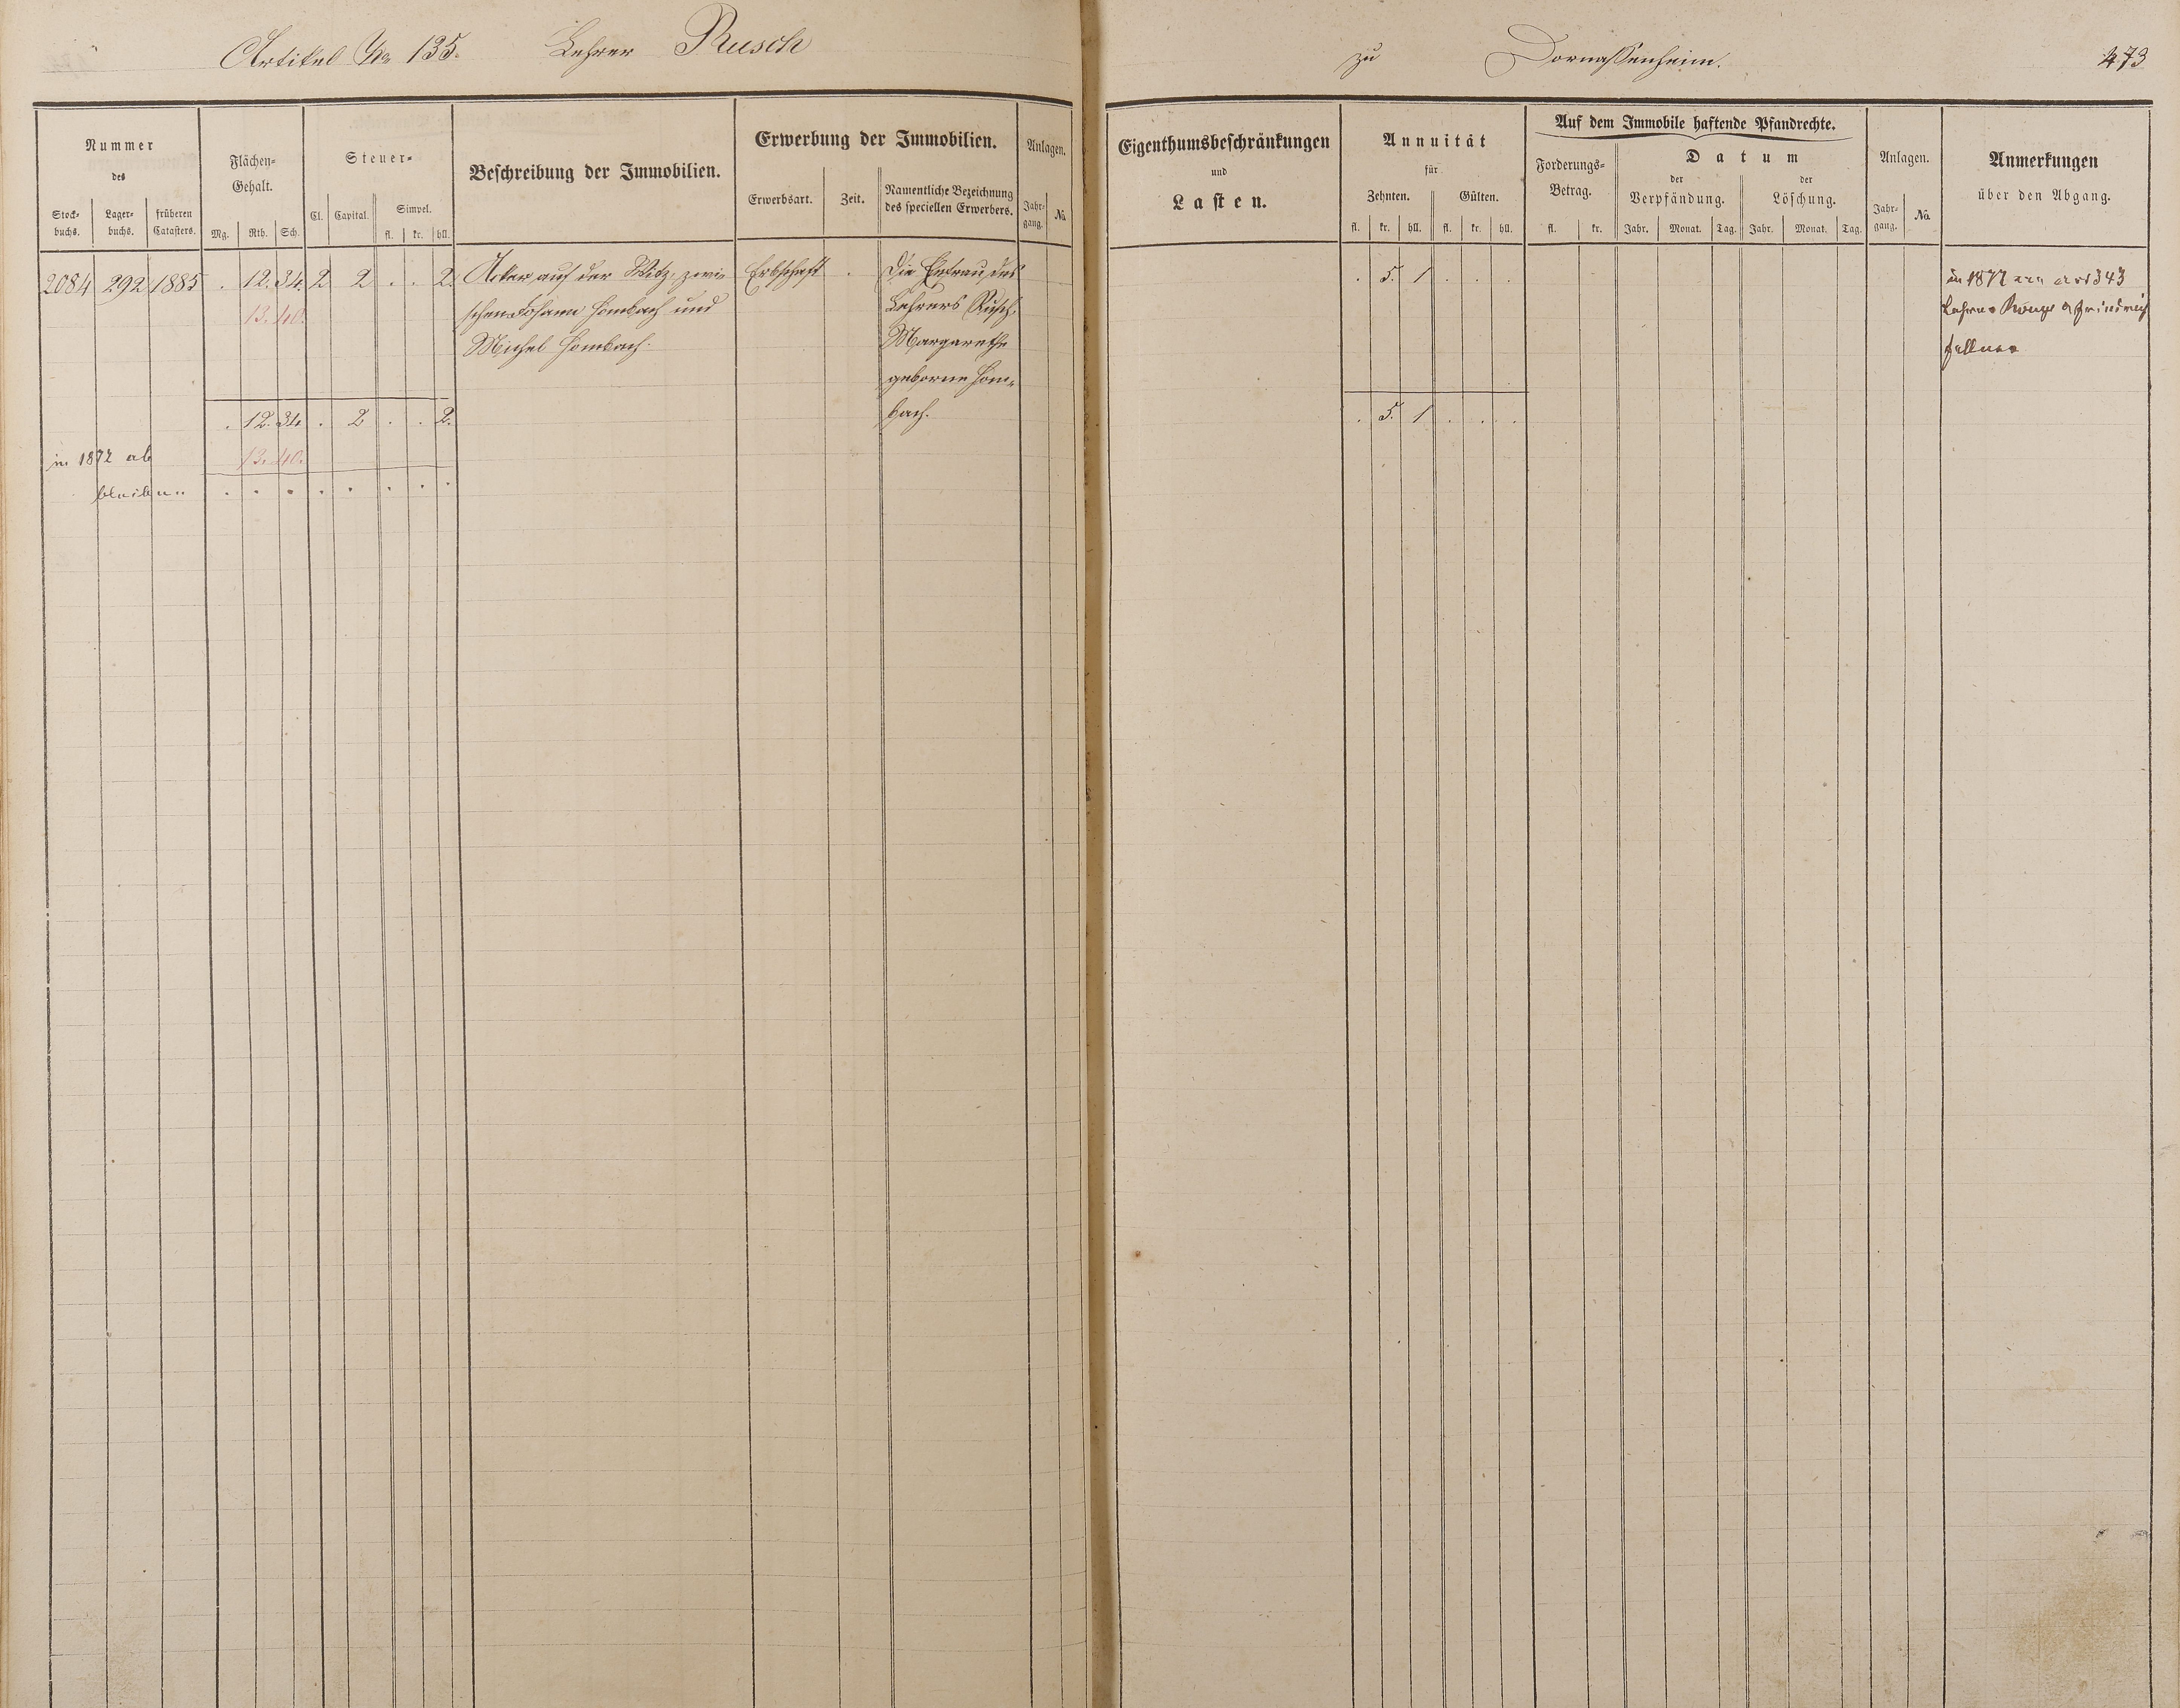 Artikel No 135. Lehrer Rusch zu Dornassenheim. 473
Nummer
des
Stock-
buchs.
Lager-
buchs.
früheren
Catasters.
Flächen-
Gehalt.
Mg. Rth. Sch.
Steuer-
Cl. Capital.
Simpel.
fl. kr. hll.
Beschreibung der Immobilien.
Erwerbung der Immobilien.
Erwerbsart. Zeit.
Namentliche Bezeichnung
des speciellen Erwerbers.
Anlagen.
Jahr-
gang.
No.
Eigenthumsbeschränkungen
und
Lasten.
Annuität
für
Zehnten. Gülten.
fl. kr. hll. fl. kr. hll.
Auf dem Immobile haftende Pfandrechte.
Forderungs-
Betrag.
fl. kr.
Datum
der
Verpfändung.
der
Löschung.
Jahr. Monat. Tag. Jahr. Monat. Tag.
Anlagen.
Jahr-
gang.
No.
Anmerkungen
über den Abgang.
2084 292 1885 . 12. 34. 2 2 . . 2.
13. 40.
Acker auf der Witz, zwi-
schen Johann Hombach und
Michel Hombach.
Erbschaft .
Die Ehefrau des
Lehrers Rusch,
Margarethe
geborne Hom-
bach.
. 5. 1 . . .
in 1872 an art 343
Lehrer Friedrich
. 12. 34. . 2 . . 2.
. 5. 1 . . .
in 1872 ab 13. 40.
bleiben . . . . . . . .